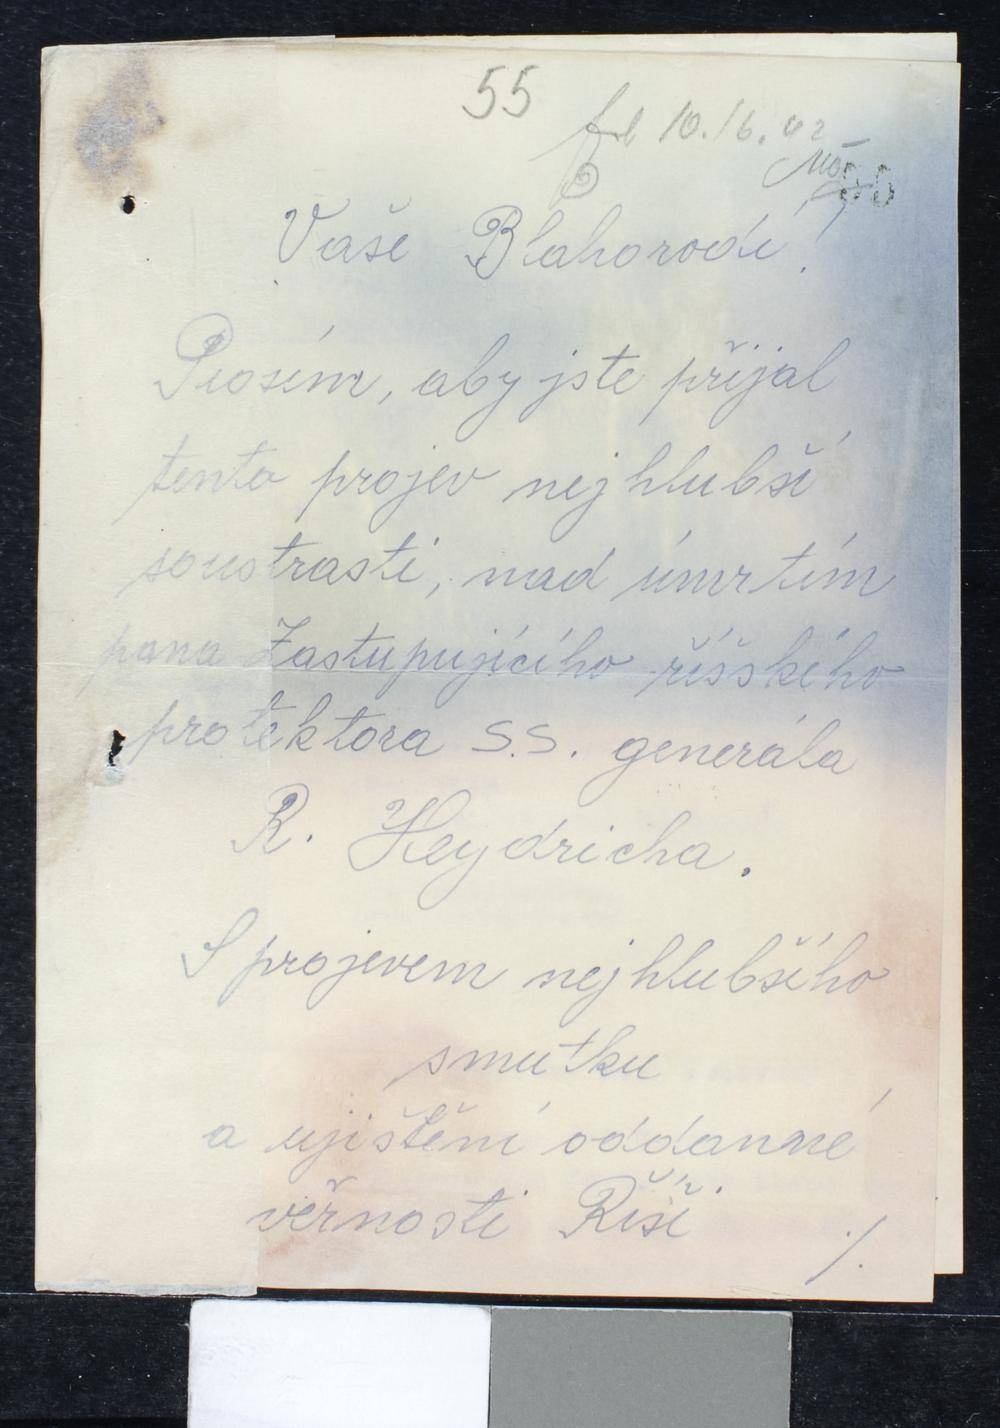 55
10./6. 42
Vaše Blahorodí!
Prosím, aby jste přijal
tento projev nejhlubší
soustrasti, nad úmrtím
pana Zastupujícího říšského
protektora S.S. generála
R. Heydricha.
S projevem nejhlubšího
smutku
a ujištění oddanné
věrnosti Říši
./.